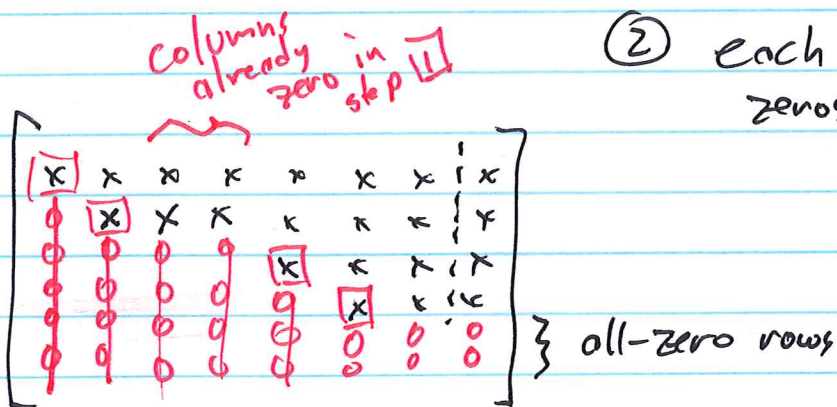 columns
already
zero in
step 1
② each
zeros
x x x x x x x x
0 x x x x x x x
0 0 0 0 x x x x
0 0 0 0 0 x x x
0 0 0 0 0 0 0 0
0 0 0 0 0 0 0 0
} all-zero rows